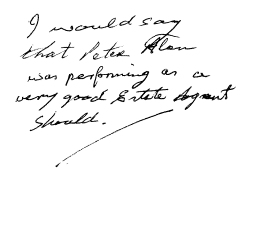 I would say
that Peter Alan
was performing as a
very good Estate Agent
should.